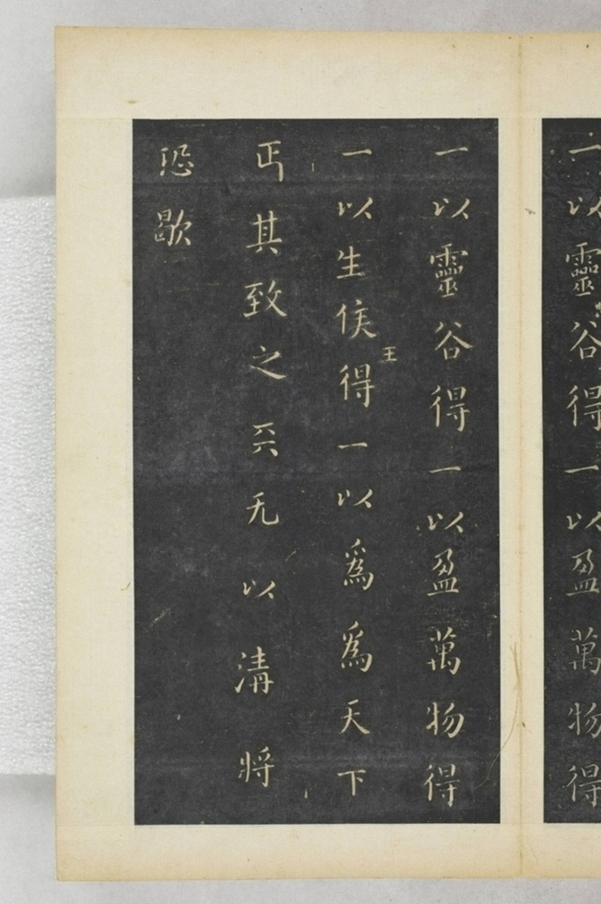 一以靈谷得一以盈萬物得
一以靈谷得一以盈萬物得
一以生侯王得一以爲爲天下
正其致之天无以清將
恐歇